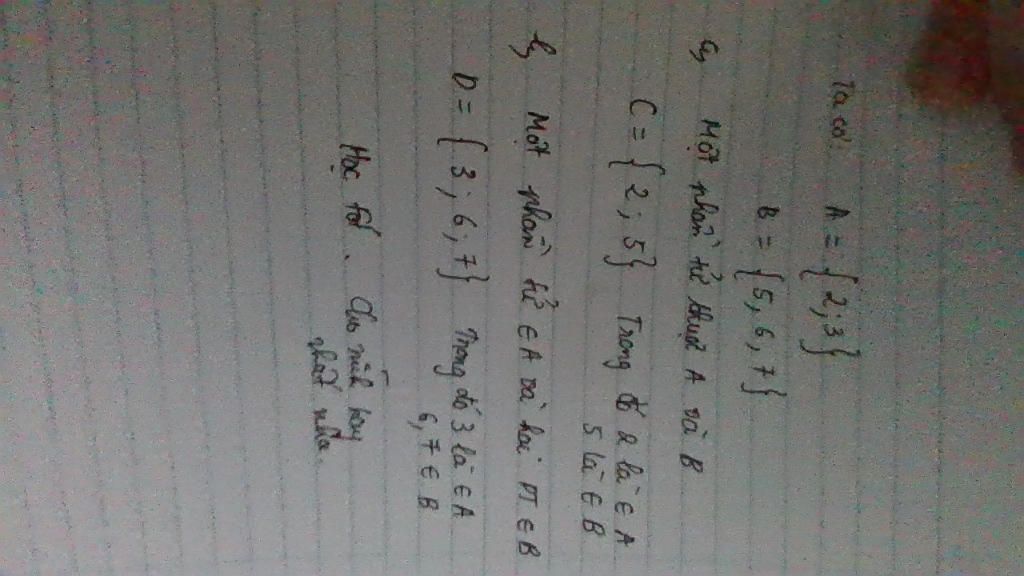 Ta có: A = { 2 ; 3 }
B = { 5, 6, 7 }
a, Một phần tử thuộc A và B
C = { 2 ; 5 } Trong đó 2 là ∈ A
5 là ∈ B
b, Một phần tử ∈ A và hai PT ∈ B
D = { 3 ; 6 ; 7 } Trong đó 3 là ∈ A
6, 7 ∈ B
Học tốt . Cho mình hay
nhất nha.